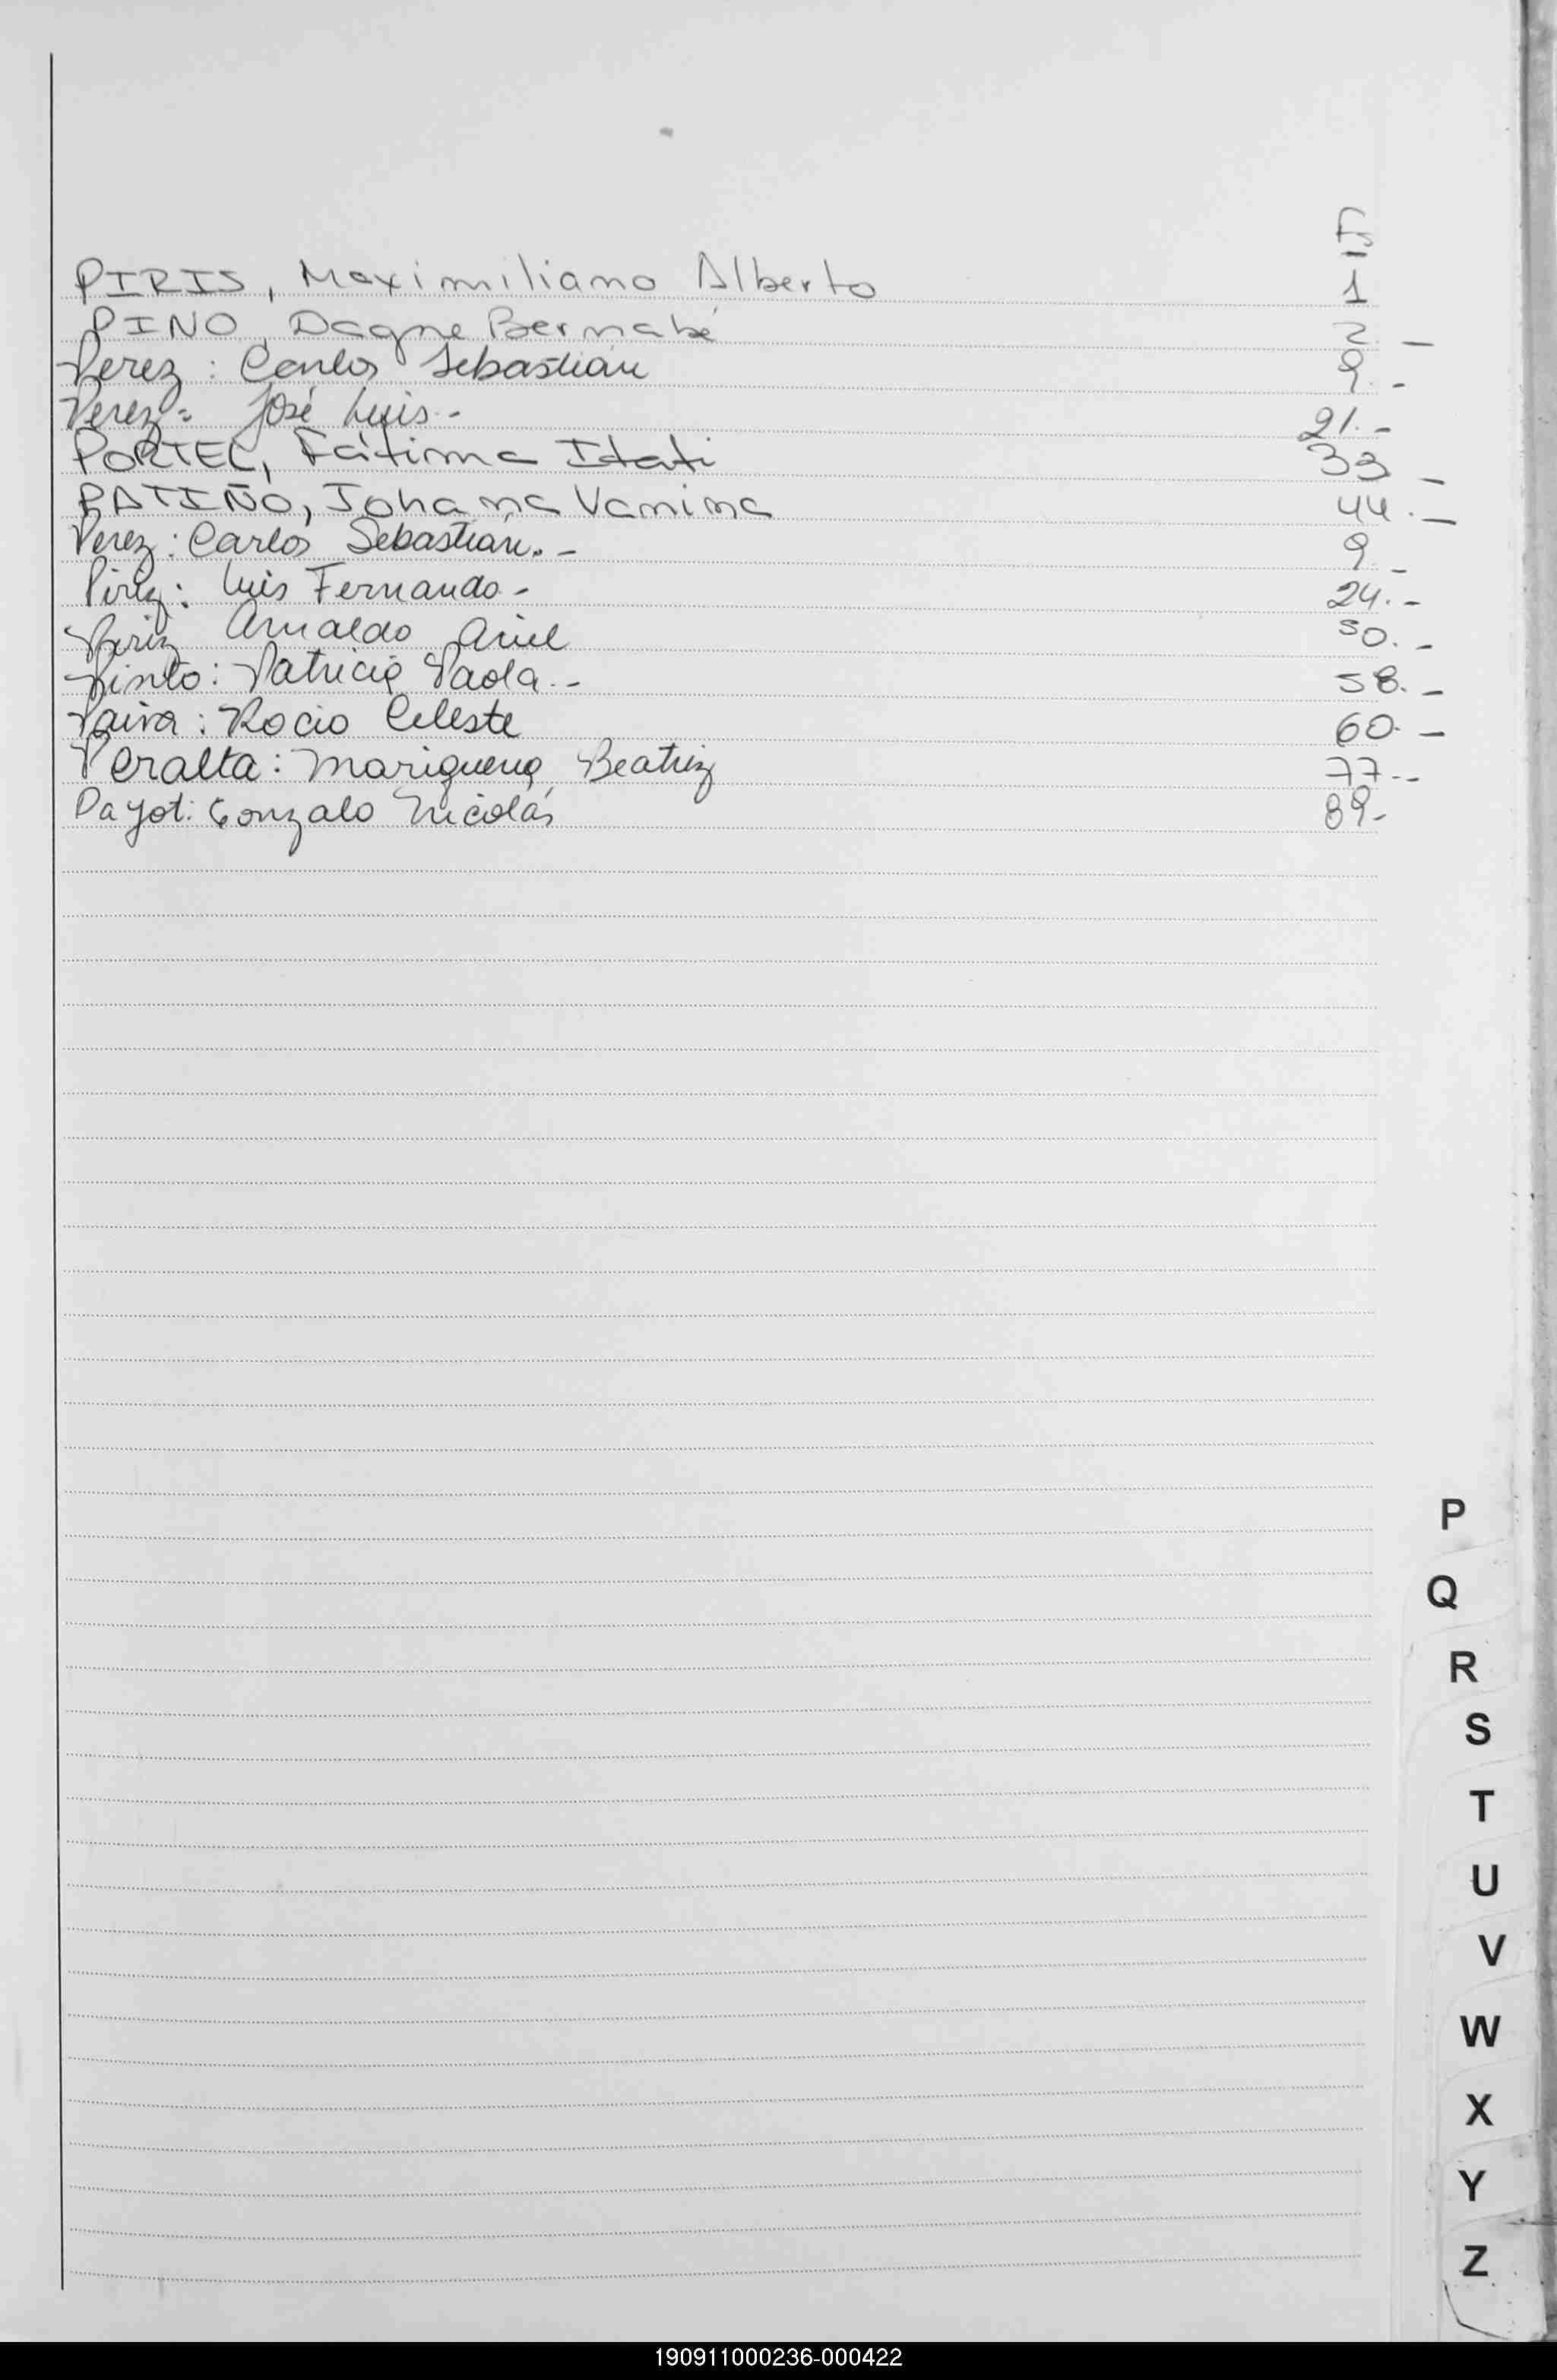 Fs
PIRIS, Maximiliano Alberto 1
PINO, Dagne Bernabé 2. -
Perez : Carlos Sebastián 9. -
Perez = José Luis.- 21. -
PORTEL, Fátima Itati 33 -
PATIÑO, Johana Vanina 44. -
Perez : Carlos Sebastián. - 9. -
Pirez : Luis Fernando - 24. -
Arnaldo Ariel 50. -
Pinto : Patricia Paola. - 58. -
Paiva : Rocio Celeste 60. -
Peralta : Beatriz 77. -
Payot : Gonzalo Nicolás 89-
P
Q
R
S
T
U
V
W
X
Y
Z
190911000236-000422